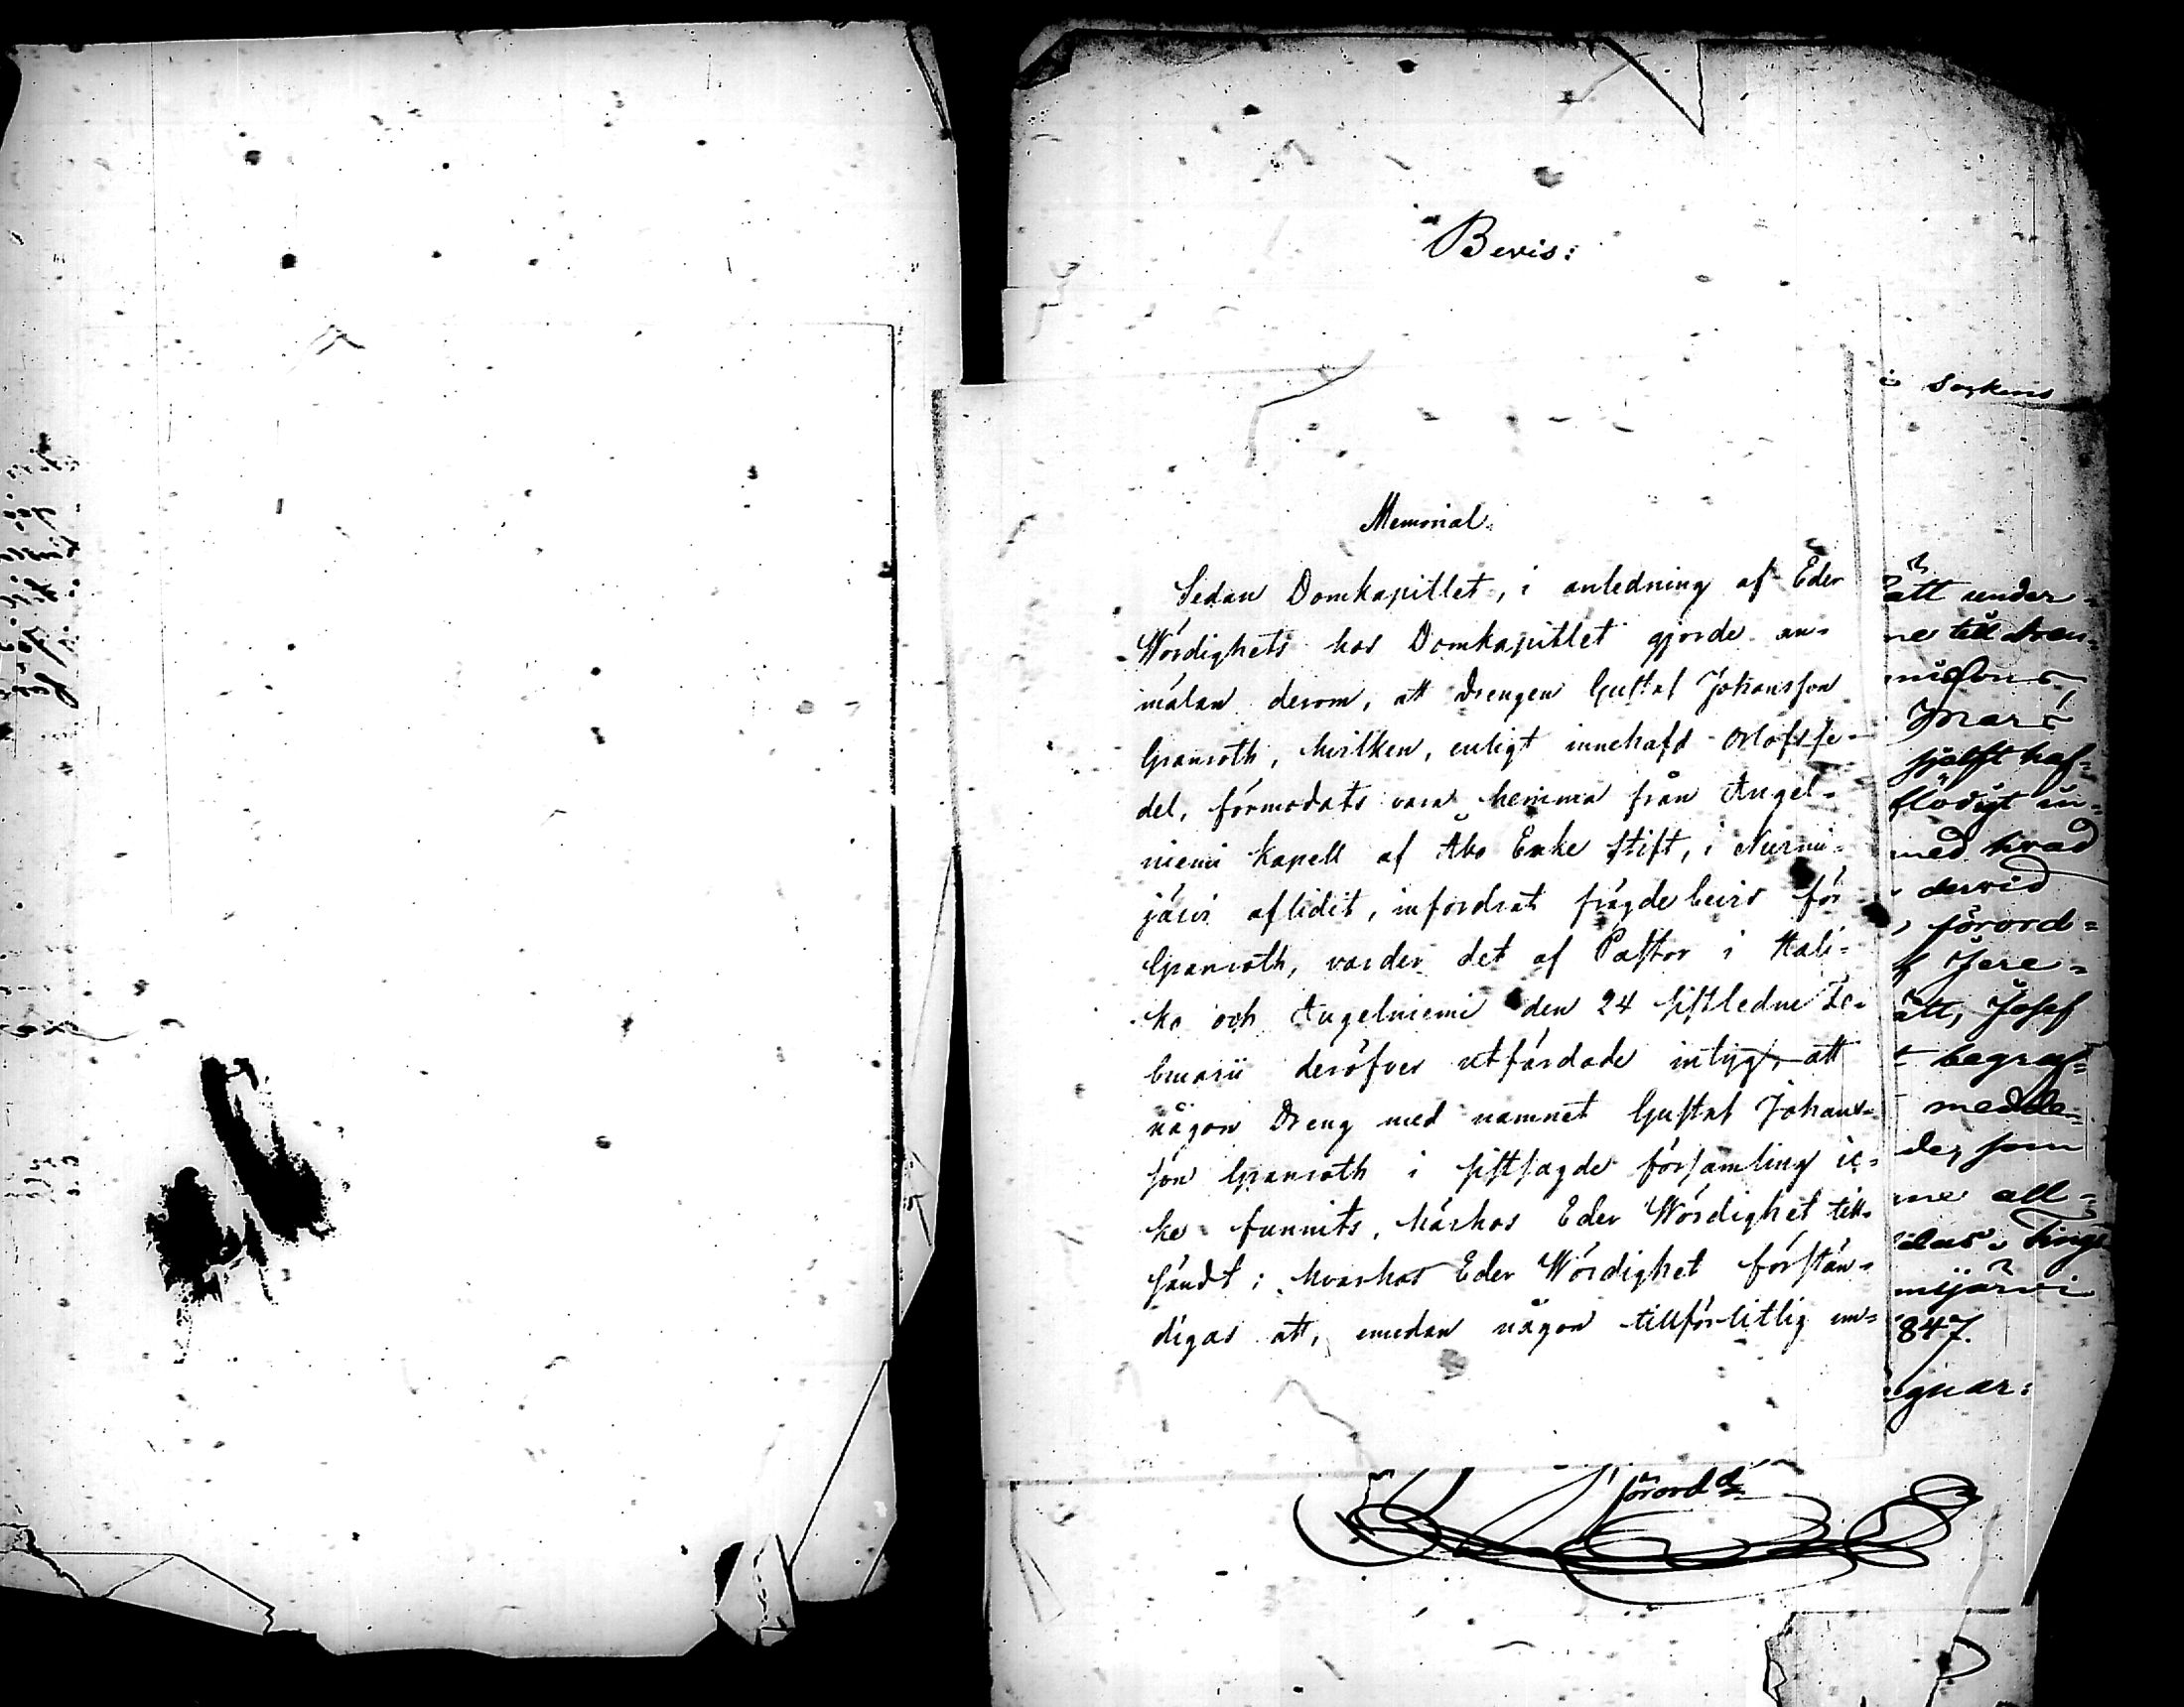 Bevis:
Memorial.
Sedan Domkapitlet, i anledning af Eder
Wördighets hos Domkapitlet gjorde an-
mälan derom, att drengen Gustaf Johansson
Granroth, hvilken, enligt innehafd orlofsse-
del, förmodats vara hemma från Angel-
niemi kapell af Åbo Erke stift, i Nurmi-
järvi aflidit, infordrat frägdebevis för
Granroth, varder det af Pastor i Hali-
ko och Angelniemi den 24 sistledne Fe-
bruarii deröfver utfärdade intyg, att
någon Dreng med namnet Gustaf Johans-
son Granroth i sistsagde församling ic-
ke funnits, härhos Eder Wördighet till-
sändt; hvarhos Eder Wördighet förstän-
digas att, emedan någon tillförlitlig un-
i Sockens
att under-
ne till dren-
Inars
sjelft haf-
flödigt un-
med hvad
dervid
förord-
Jere-
ätt, Josef
begraf-
medde-
der som
me all-
Tings
mijärvi
847.
gnar:
förord